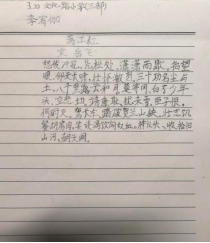 3.20 文化路小学
满江红
宋 岳飞
怒发冲冠,凭栏处、潇潇雨歇。抬望
眼,仰天长啸,壮怀激烈。三十功名尘与
土,八千里路云和月。莫等闲、白了少年
头,空悲切。靖康耻,犹未雪。臣子恨,
何时灭。驾长车,踏破贺兰山缺。壮志饥
餐胡虏肉,笑谈渴饮匈奴血。待从头、收拾旧
山河,朝天阙。